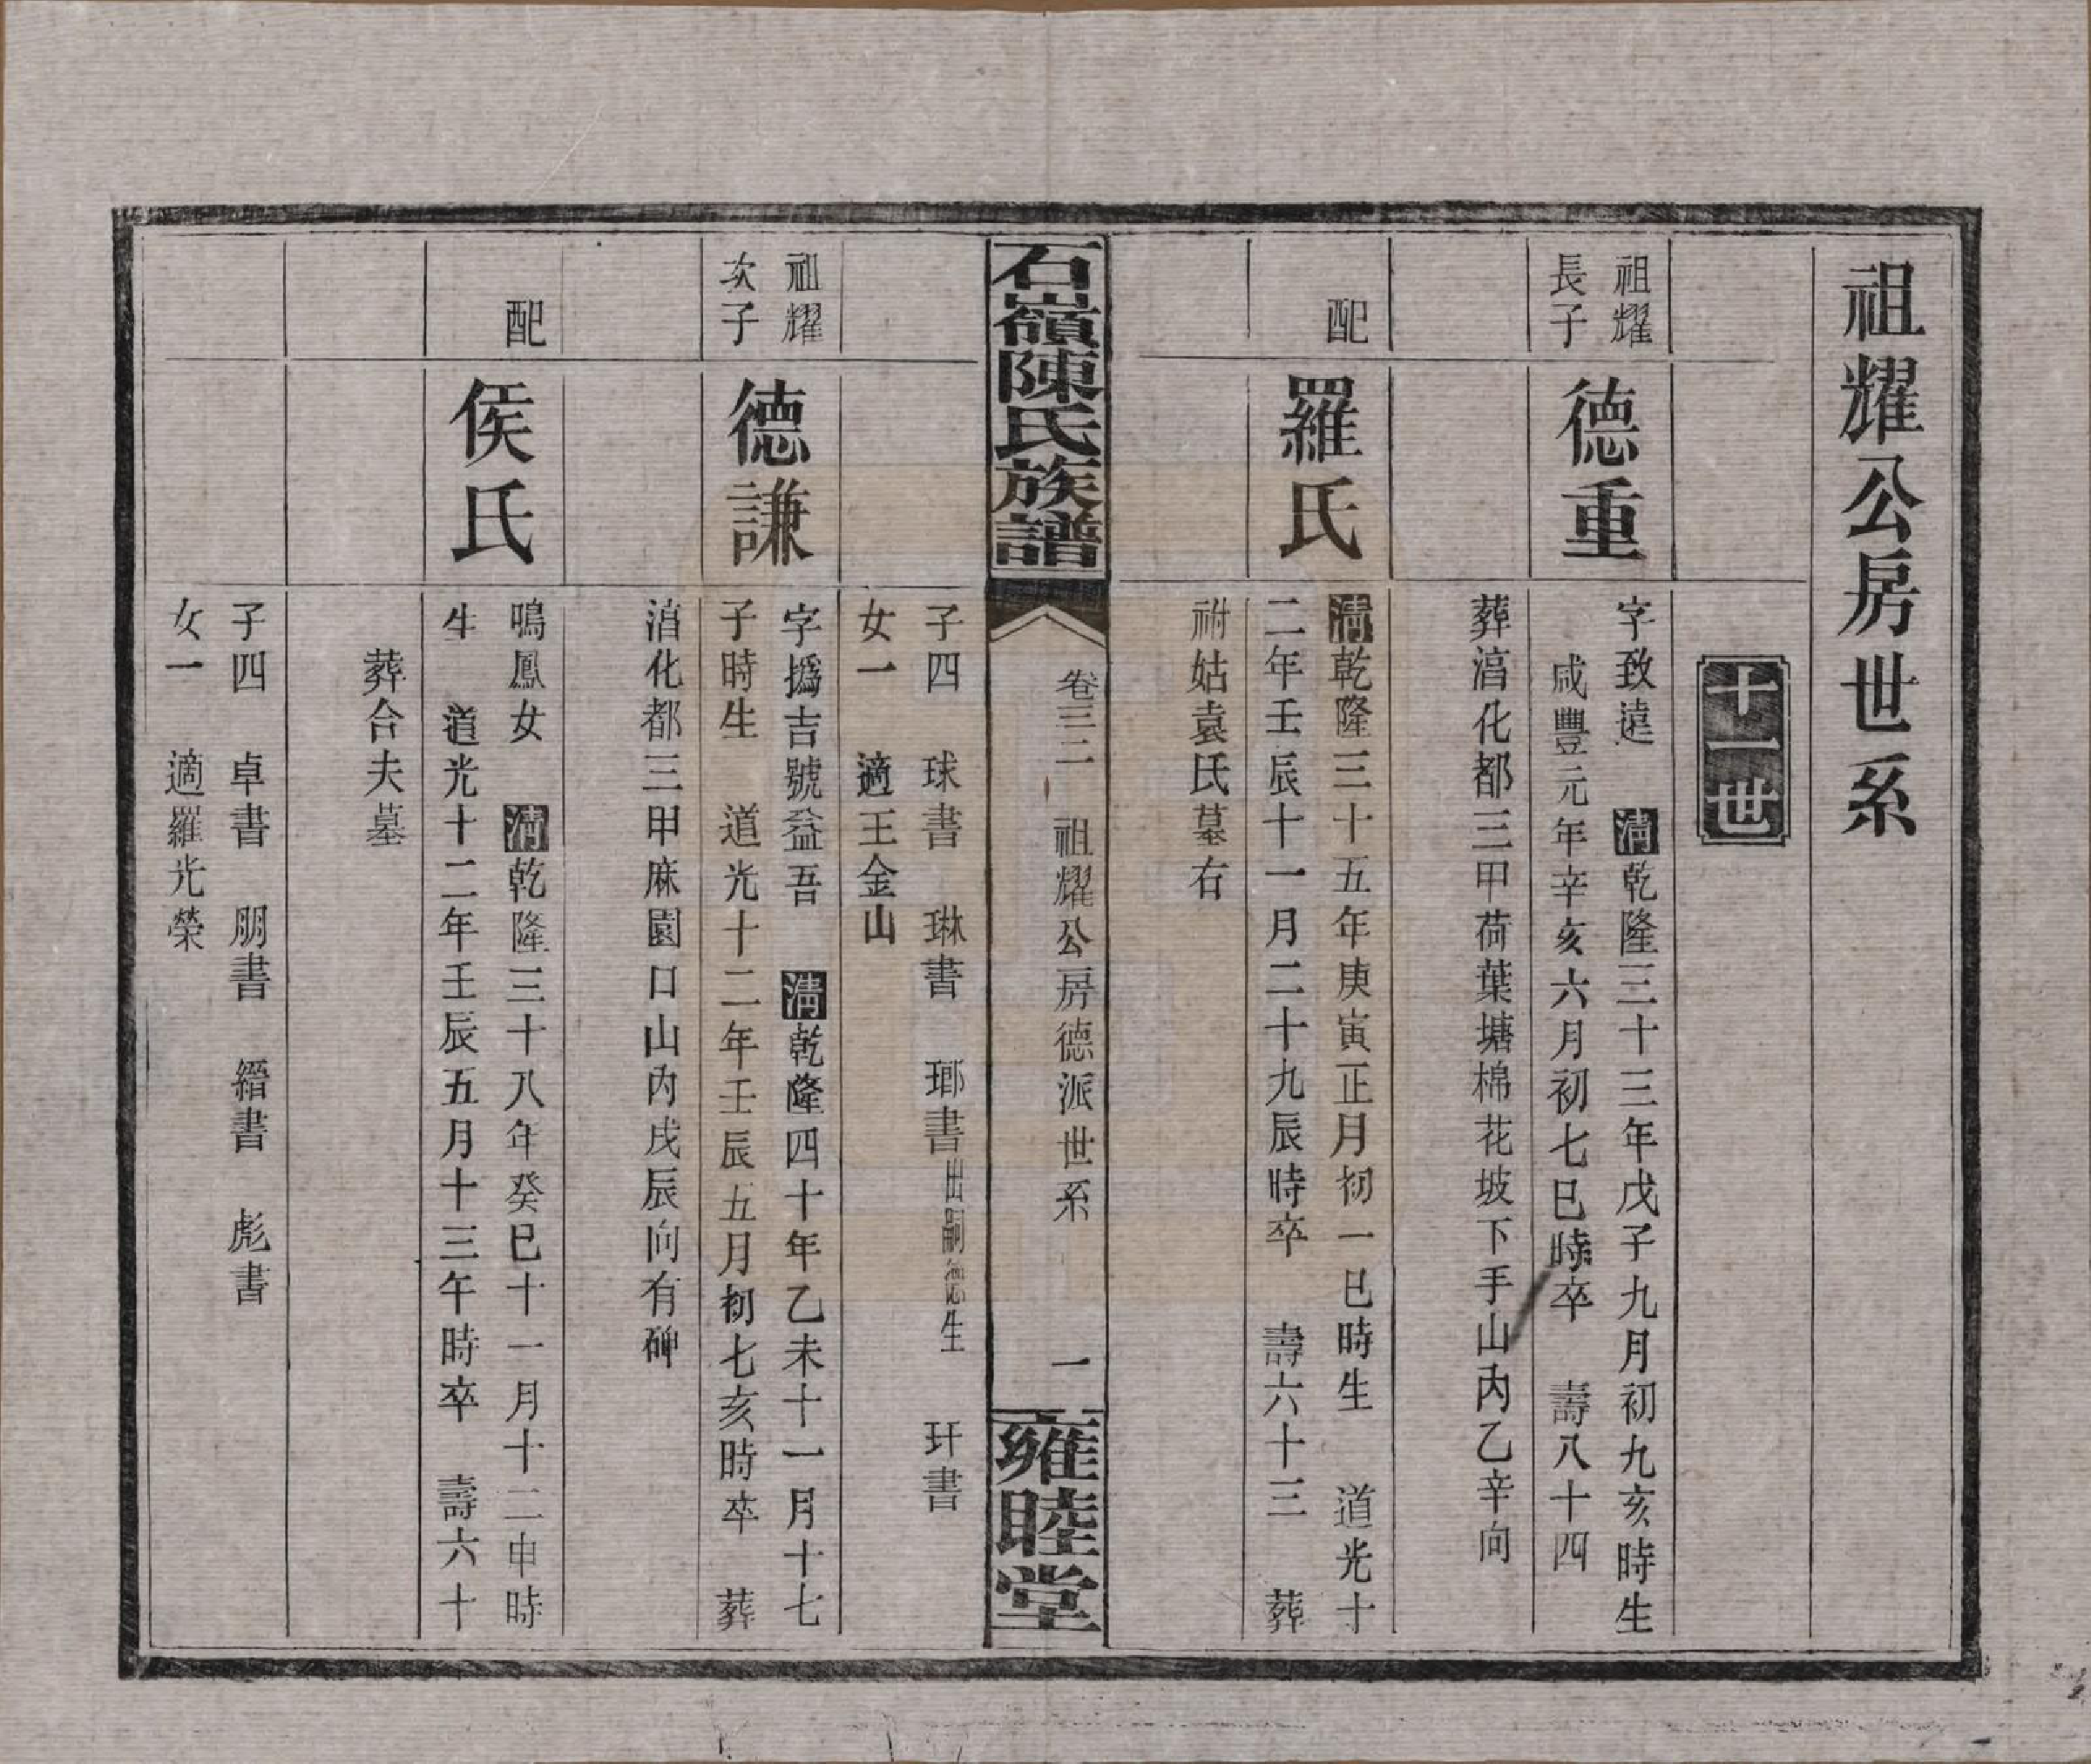 祖耀公房世系
十一世
祖耀
長子
德重
字致遠 清乾隆三十三年戊子九月初九亥時生
咸豐元年辛亥六月初七巳時卒 壽八十四
葬滔化都三甲荷葉塘棉花坡下手山內乙辛向
配
羅氏
清乾隆三十五年庚寅正月初一巳時生 道光十
二年壬辰十一月二十九辰時卒 壽六十三 葬
祔姑袁氏墓右
石嶺陳氏族譜
卷三二 祖耀公房德派世系 一
雍睦堂
子四 球書 琳書 瑯書出嗣德生 玕書
女一 適王金山
祖耀
次子
德謙
字撝吉號益吾 清乾隆四十年乙未十一月十七
子時生 道光十二年壬辰五月初七亥時卒 葬
滔化都三甲麻園口山內戌辰向有碑
配
侯氏
鳴鳳女 清乾隆三十八年癸巳十一月十二申時
生 道光十二年壬辰五月十三午時卒 壽六十
葬合夫墓
子四 卓書 朋書 縉書 彪書
女一 適羅光榮